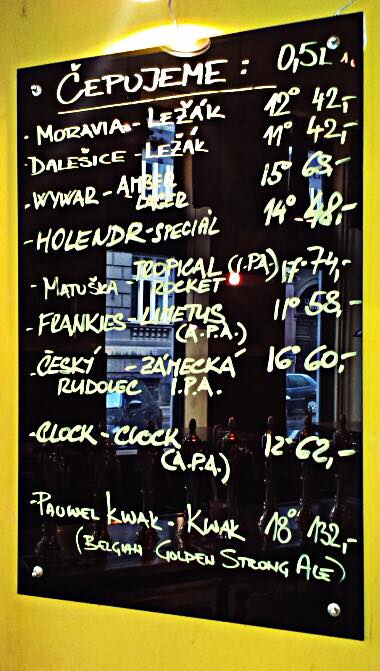 ČEPUJEME: 0,5L
- MORAVIA - LEŽÁK 12° 42,-
- DALEŠICE - LEŽÁK 11° 42,-
- WYWAR - AMBER LAGER 15° 69,-
- HOLENDR - SPECIÁL 14° 48,-
- MATUŠKA - TROPICAL ROCKET (I.P.A) 17° 74,-
- FRANKIES - LIMETUS (A.P.A.) 11° 58,-
- ČESKÝ RUDOLEC - ZÁMECKÁ I.P.A. 16° 60,-
- CLOCK - CLOCK (A.P.A.) 12° 62,-
- PAUWEL KWAK - KWAK 18° 132,-
(BELGIAN GOLDEN STRONG ALE)